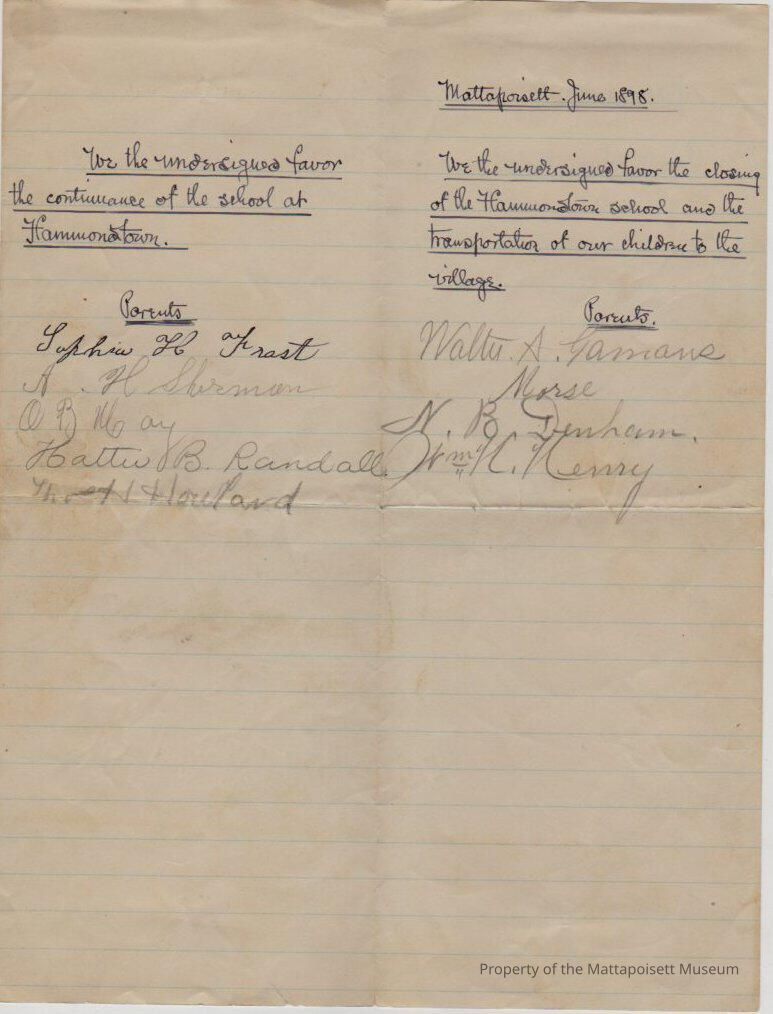 We the undersigned favor
the continuance of the school at
Hammondstown.
Parents
Sophia H Frast
A. H Sherman
O B May
Hattie B. Randall
H Howland
Mattapoisett. June 1898.
We the undersigned favor the closing
of the Hammondstown school and the
transportation of our children to the
village.
Parents.
Walter A. Gamans
Morse
N. B. Denham.
Wm. H. Henry
Property of the Mattapoisett Museum